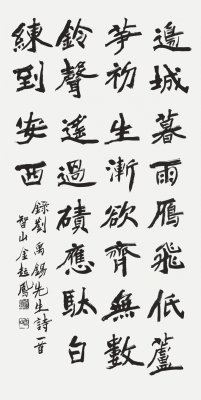 邊城暮雨鴈飛低蘆
笋初生漸欲齊無數
鈴聲遙過磧應馱白
練到安西
錄劉禹錫先生詩一首
智山金